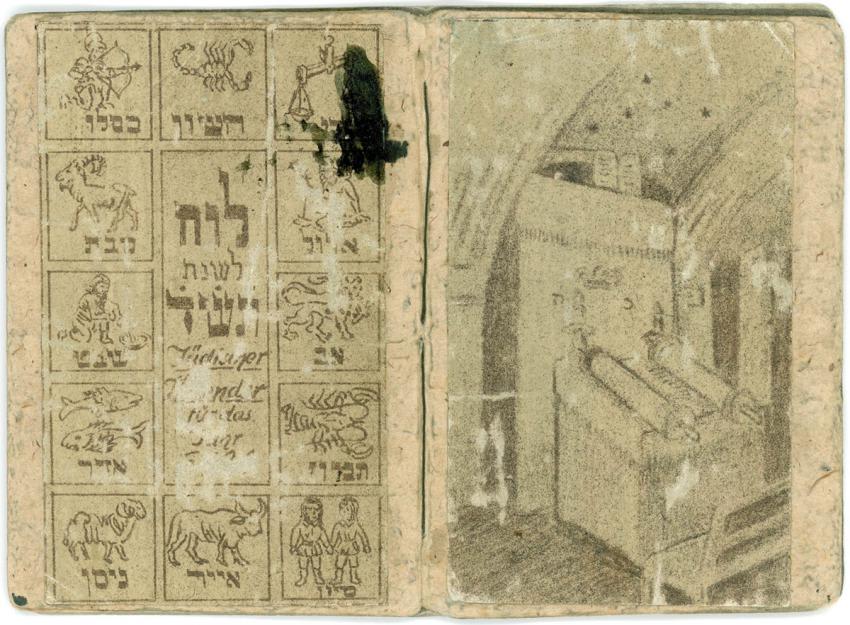 כסלו
חשון
טבת
לוח
לשנת
אלול
שבט
אב
Jüdischer
Kalender
für das
Jahr
אדר
תמוז
ניסן
אייר
סיון